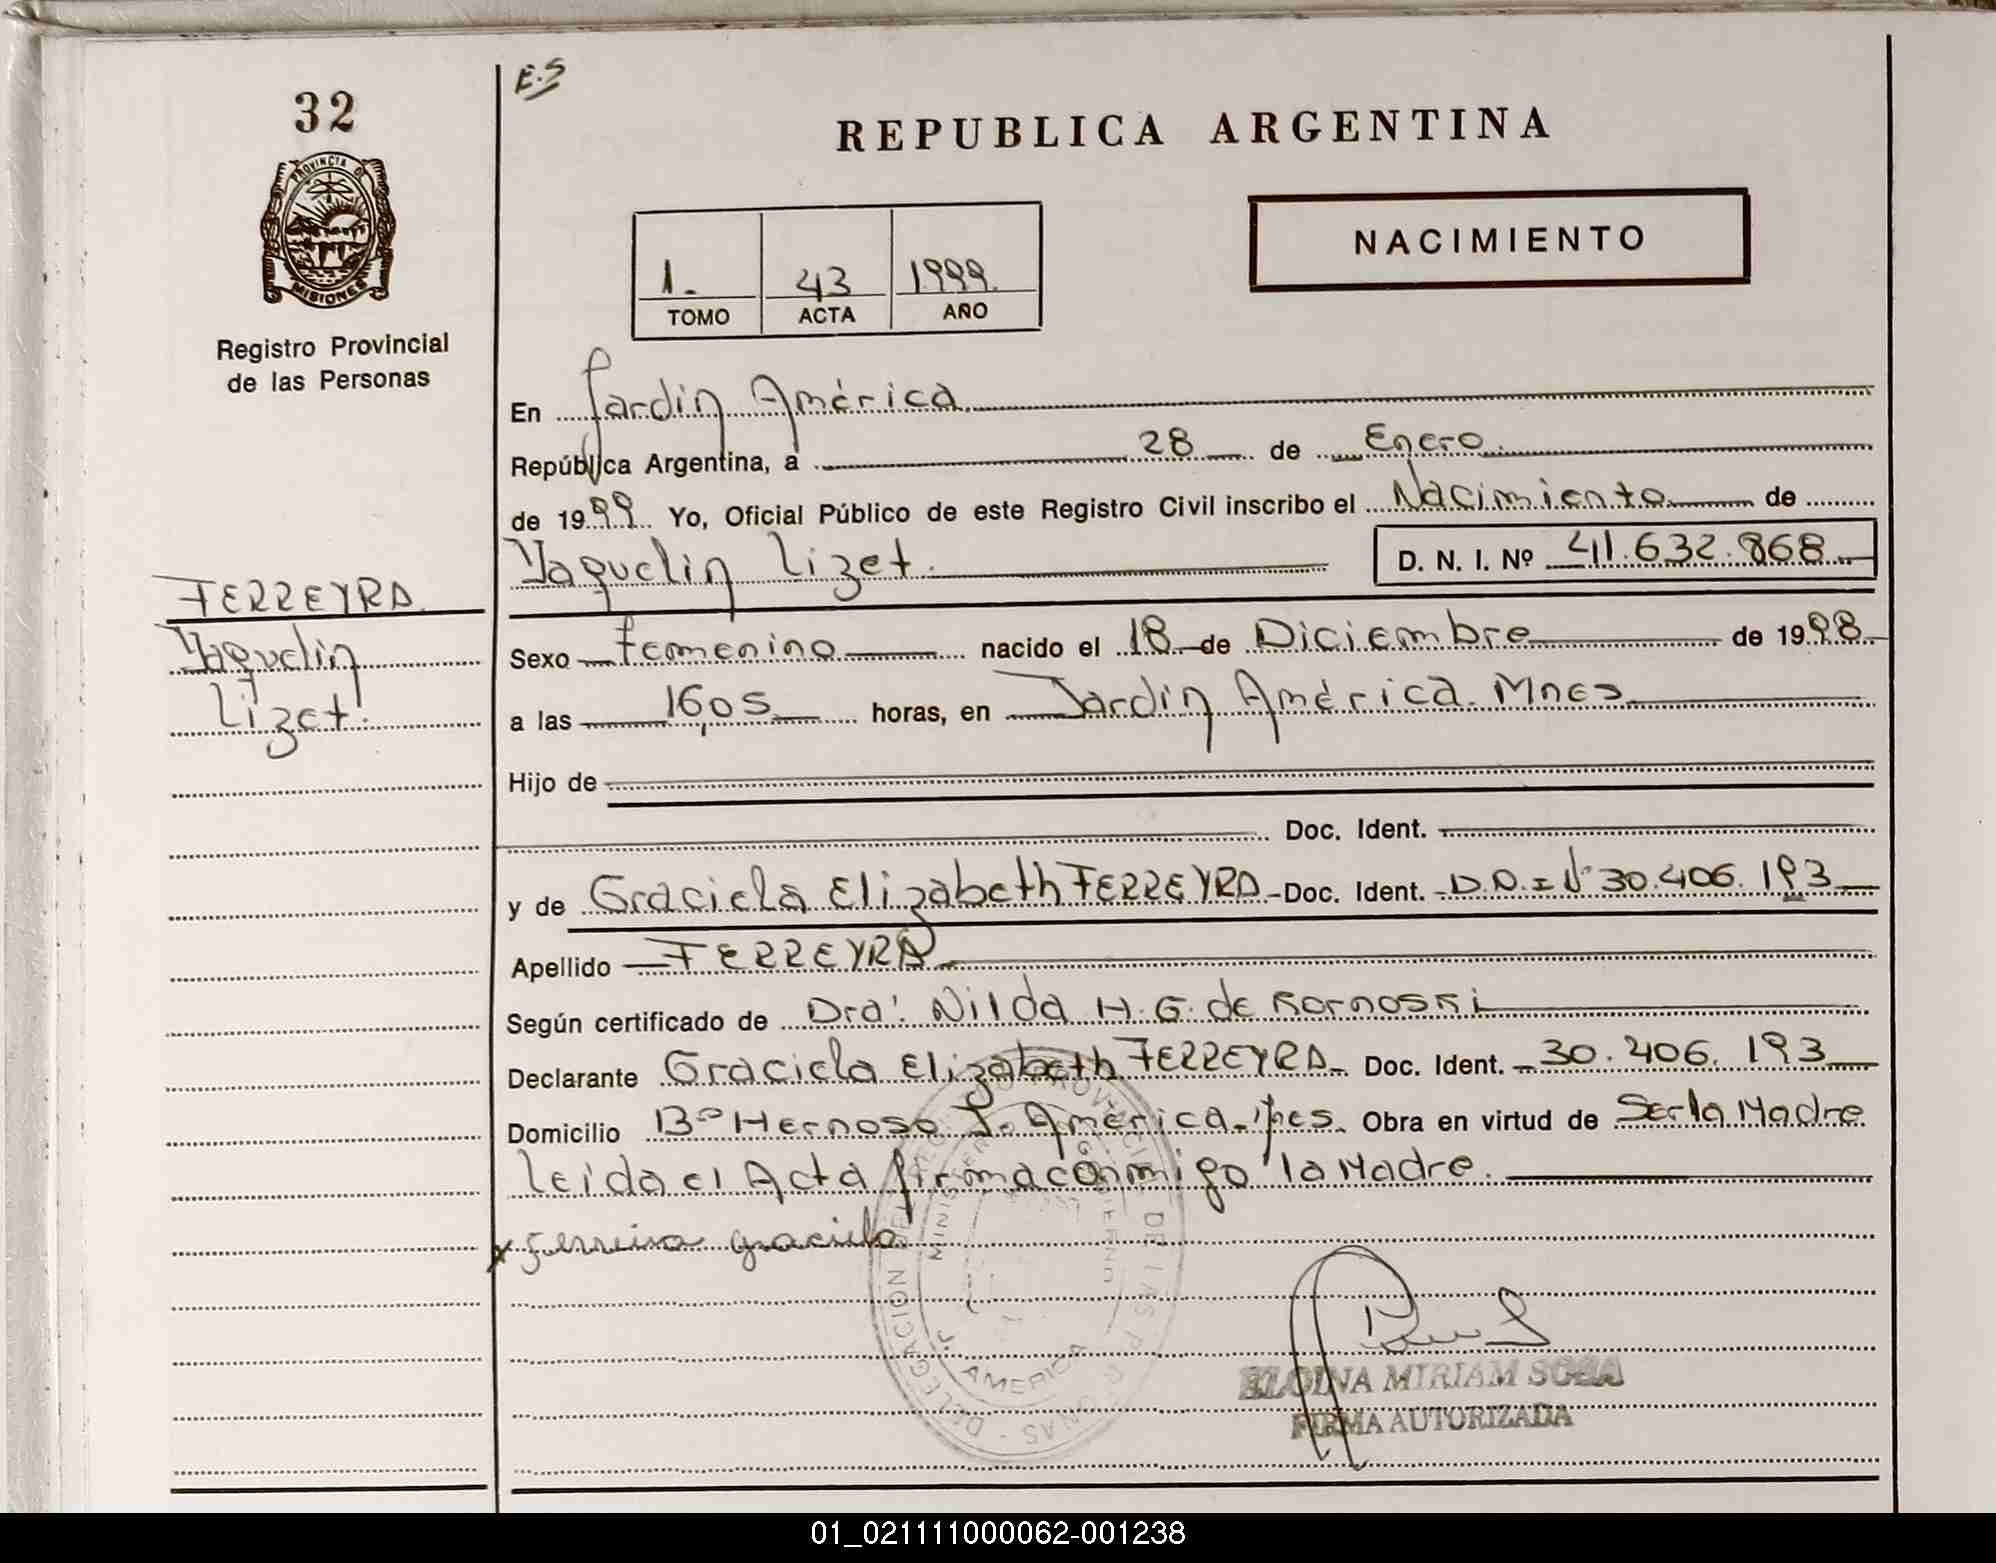 32
E.S
REPUBLICA ARGENTINA
PROVINCIA DE
MISIONES
Registro Provincial
de las Personas
NACIMIENTO
1. 43 1999.
TOMO ACTA AÑO
En Jardin América
República Argentina, a 28 de Enero
de 1999 Yo, Oficial Público de este Registro Civil inscribo el Nacimiento de
Yaquelin Lizet. D. N. I. Nº 41.632.868
FERREYRA
Yaquelin
Lizet.
Sexo femenino nacido el 18 de Diciembre de 1998
a las 16,05 horas, en Jardin América. Mnes
Hijo de
Doc. Ident.
y de Graciela Elizabeth FERREYRA Doc. Ident. D.N.I Nº 30.406.193
Apellido FERREYRA
Según certificado de Dra. Nilda H. G. de
Declarante Graciela Elizabeth FERREYRA Doc. Ident. 30.406.193
Domicilio Bº Hernoso J. América. Obra en virtud de Ser la Madre
leida el Acta firma conmigo la Madre.
x ferreira graciela
DELEGACION
J. AMERICA
ELOINA MIRIAM SOSA
FIRMA AUTORIZADA
01_021111000062-001238